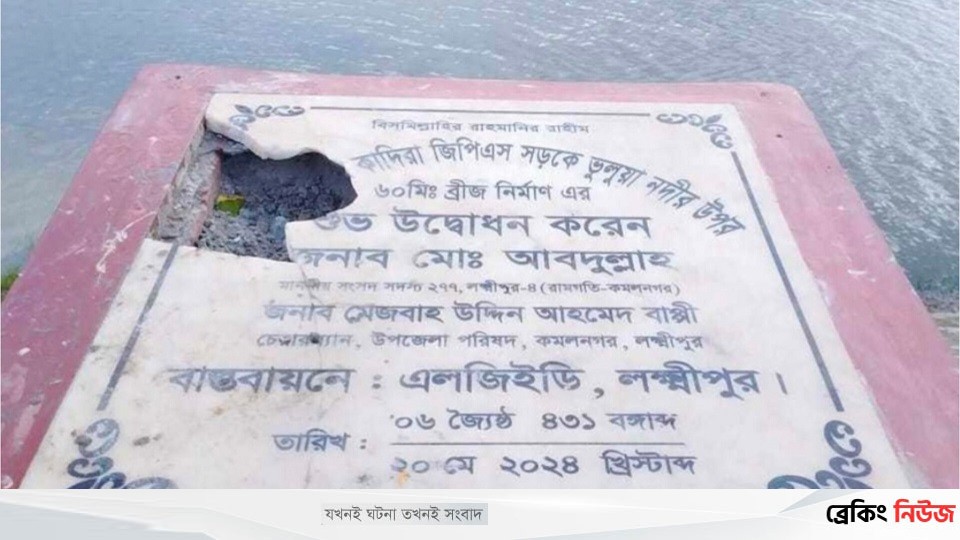 বিসমিল্লাহির রাহমানির রাহীম
কাদিরা জিপিএস সড়কে ভুলুয়া নদীর উপর
৬০মিঃ ব্রীজ নির্মাণ এর
শুভ উদ্বোধন করেন
জনাব মোঃ আবদুল্লাহ
মাননীয় সংসদ সদস্য ২৭৭, লক্ষ্মীপুর-৪ (রামগতি-কমলনগর)
জনাব মেজবাহ উদ্দিন আহমেদ বাপ্পী
চেয়ারম্যান, উপজেলা পরিষদ, কমলনগর, লক্ষ্মীপুর
বাস্তবায়নে : এলজিইডি, লক্ষ্মীপুর।
০৬ জ্যৈষ্ঠ ৪৩১ বঙ্গাব্দ
তারিখ :
২০ মে ২০২৪ খ্রিস্টাব্দ
যখনই ঘটনা তখনই সংবাদ
ব্রেকিং নিউজ